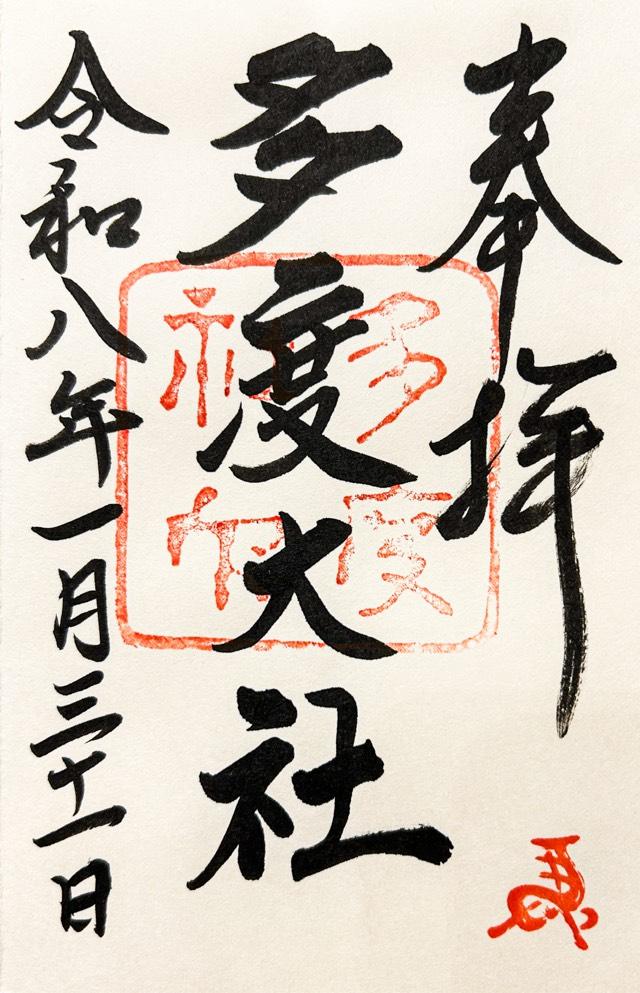 奉拝
多度大社
令和八年一月三十一日
多度
社印
馬